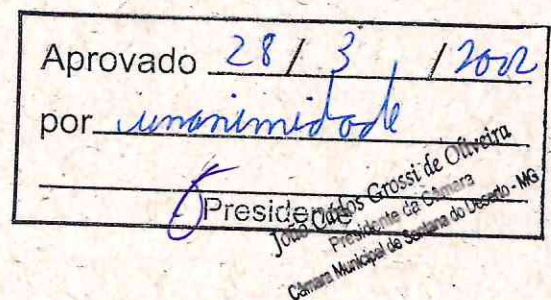 Aprovado 28 / 3 / 2002
por unanimidade
Presidente
João Carlos Grossi de Oliveira
Presidente da Câmara
Câmara Municipal de Santana do Deserto - MG